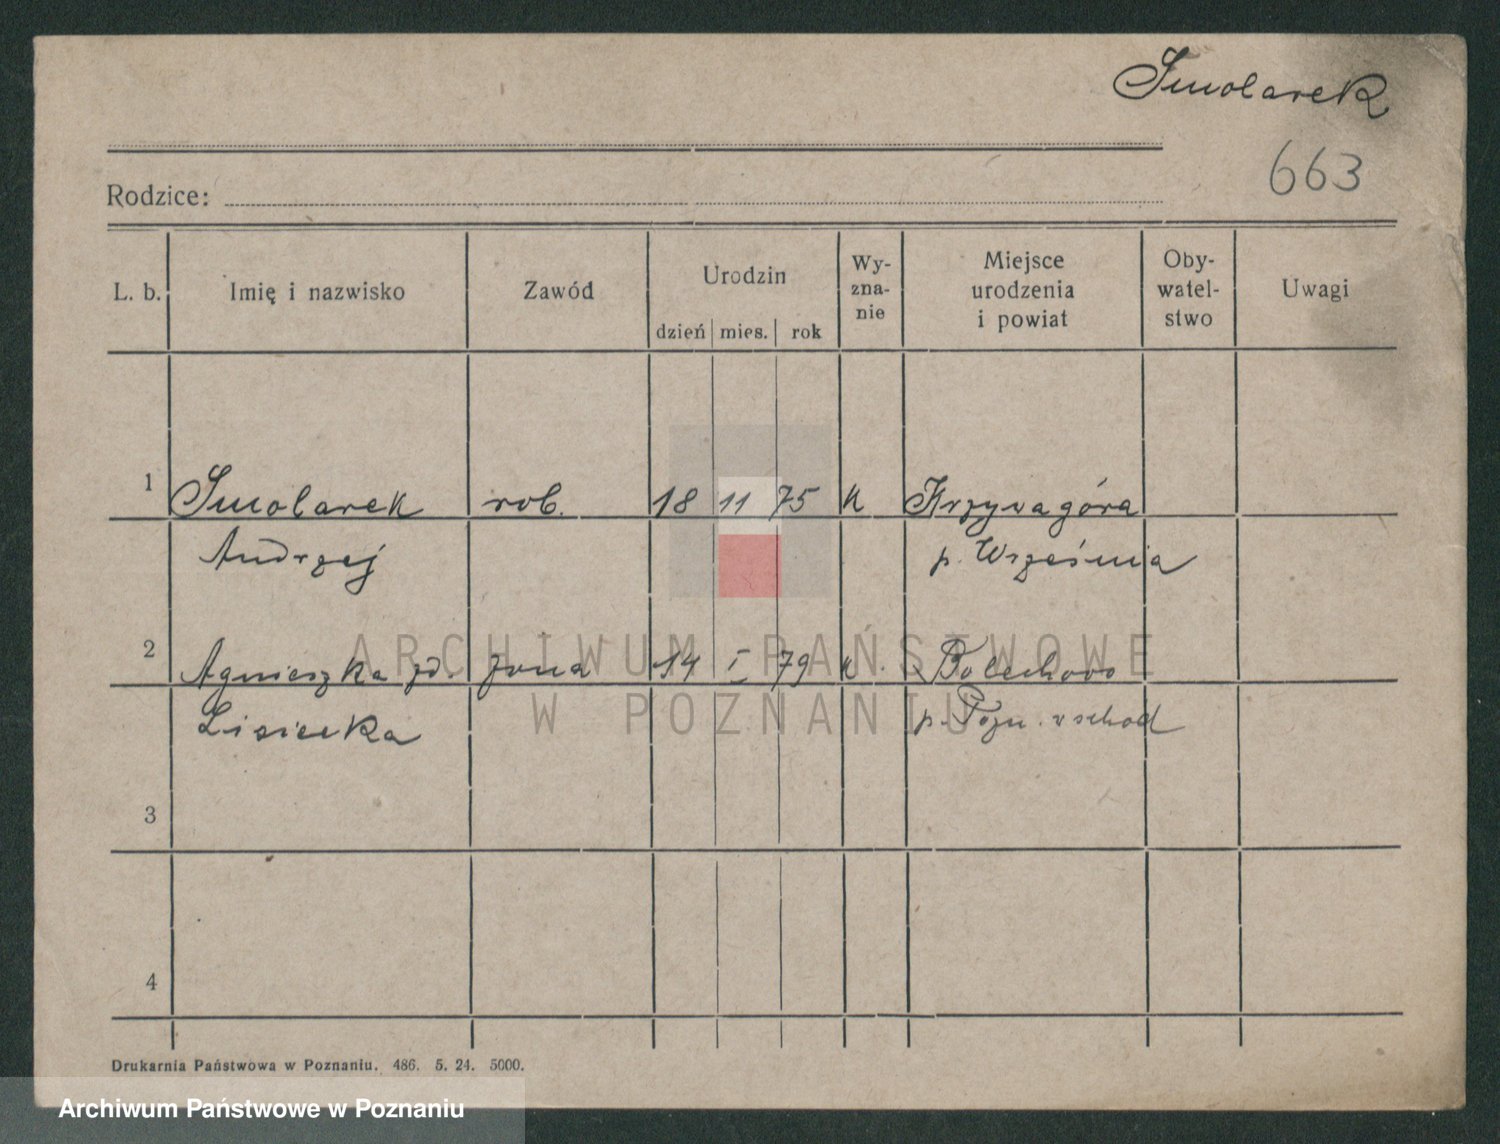 Smolarek
663
Rodzice:
L. b. Imię i nazwisko Zawód Urodzin dzień mies. rok Wy-zna-nie Miejsce urodzenia i powiat Oby-watel-stwo Uwagi
1 Smolarek rob. 18 11 75 k Krzywagóra
Andrzej p. Września
2 Agnieszka zd. żona 14 I 79 k. Bolechowo
Lisiecka p. Pozn. wschod
3
4
Drukarnia Państwowa w Poznaniu. 486. 5. 24. 5000.
ARCHIWUM PAŃSTWOWE
W POZNANIU
Archiwum Państwowe w Poznaniu